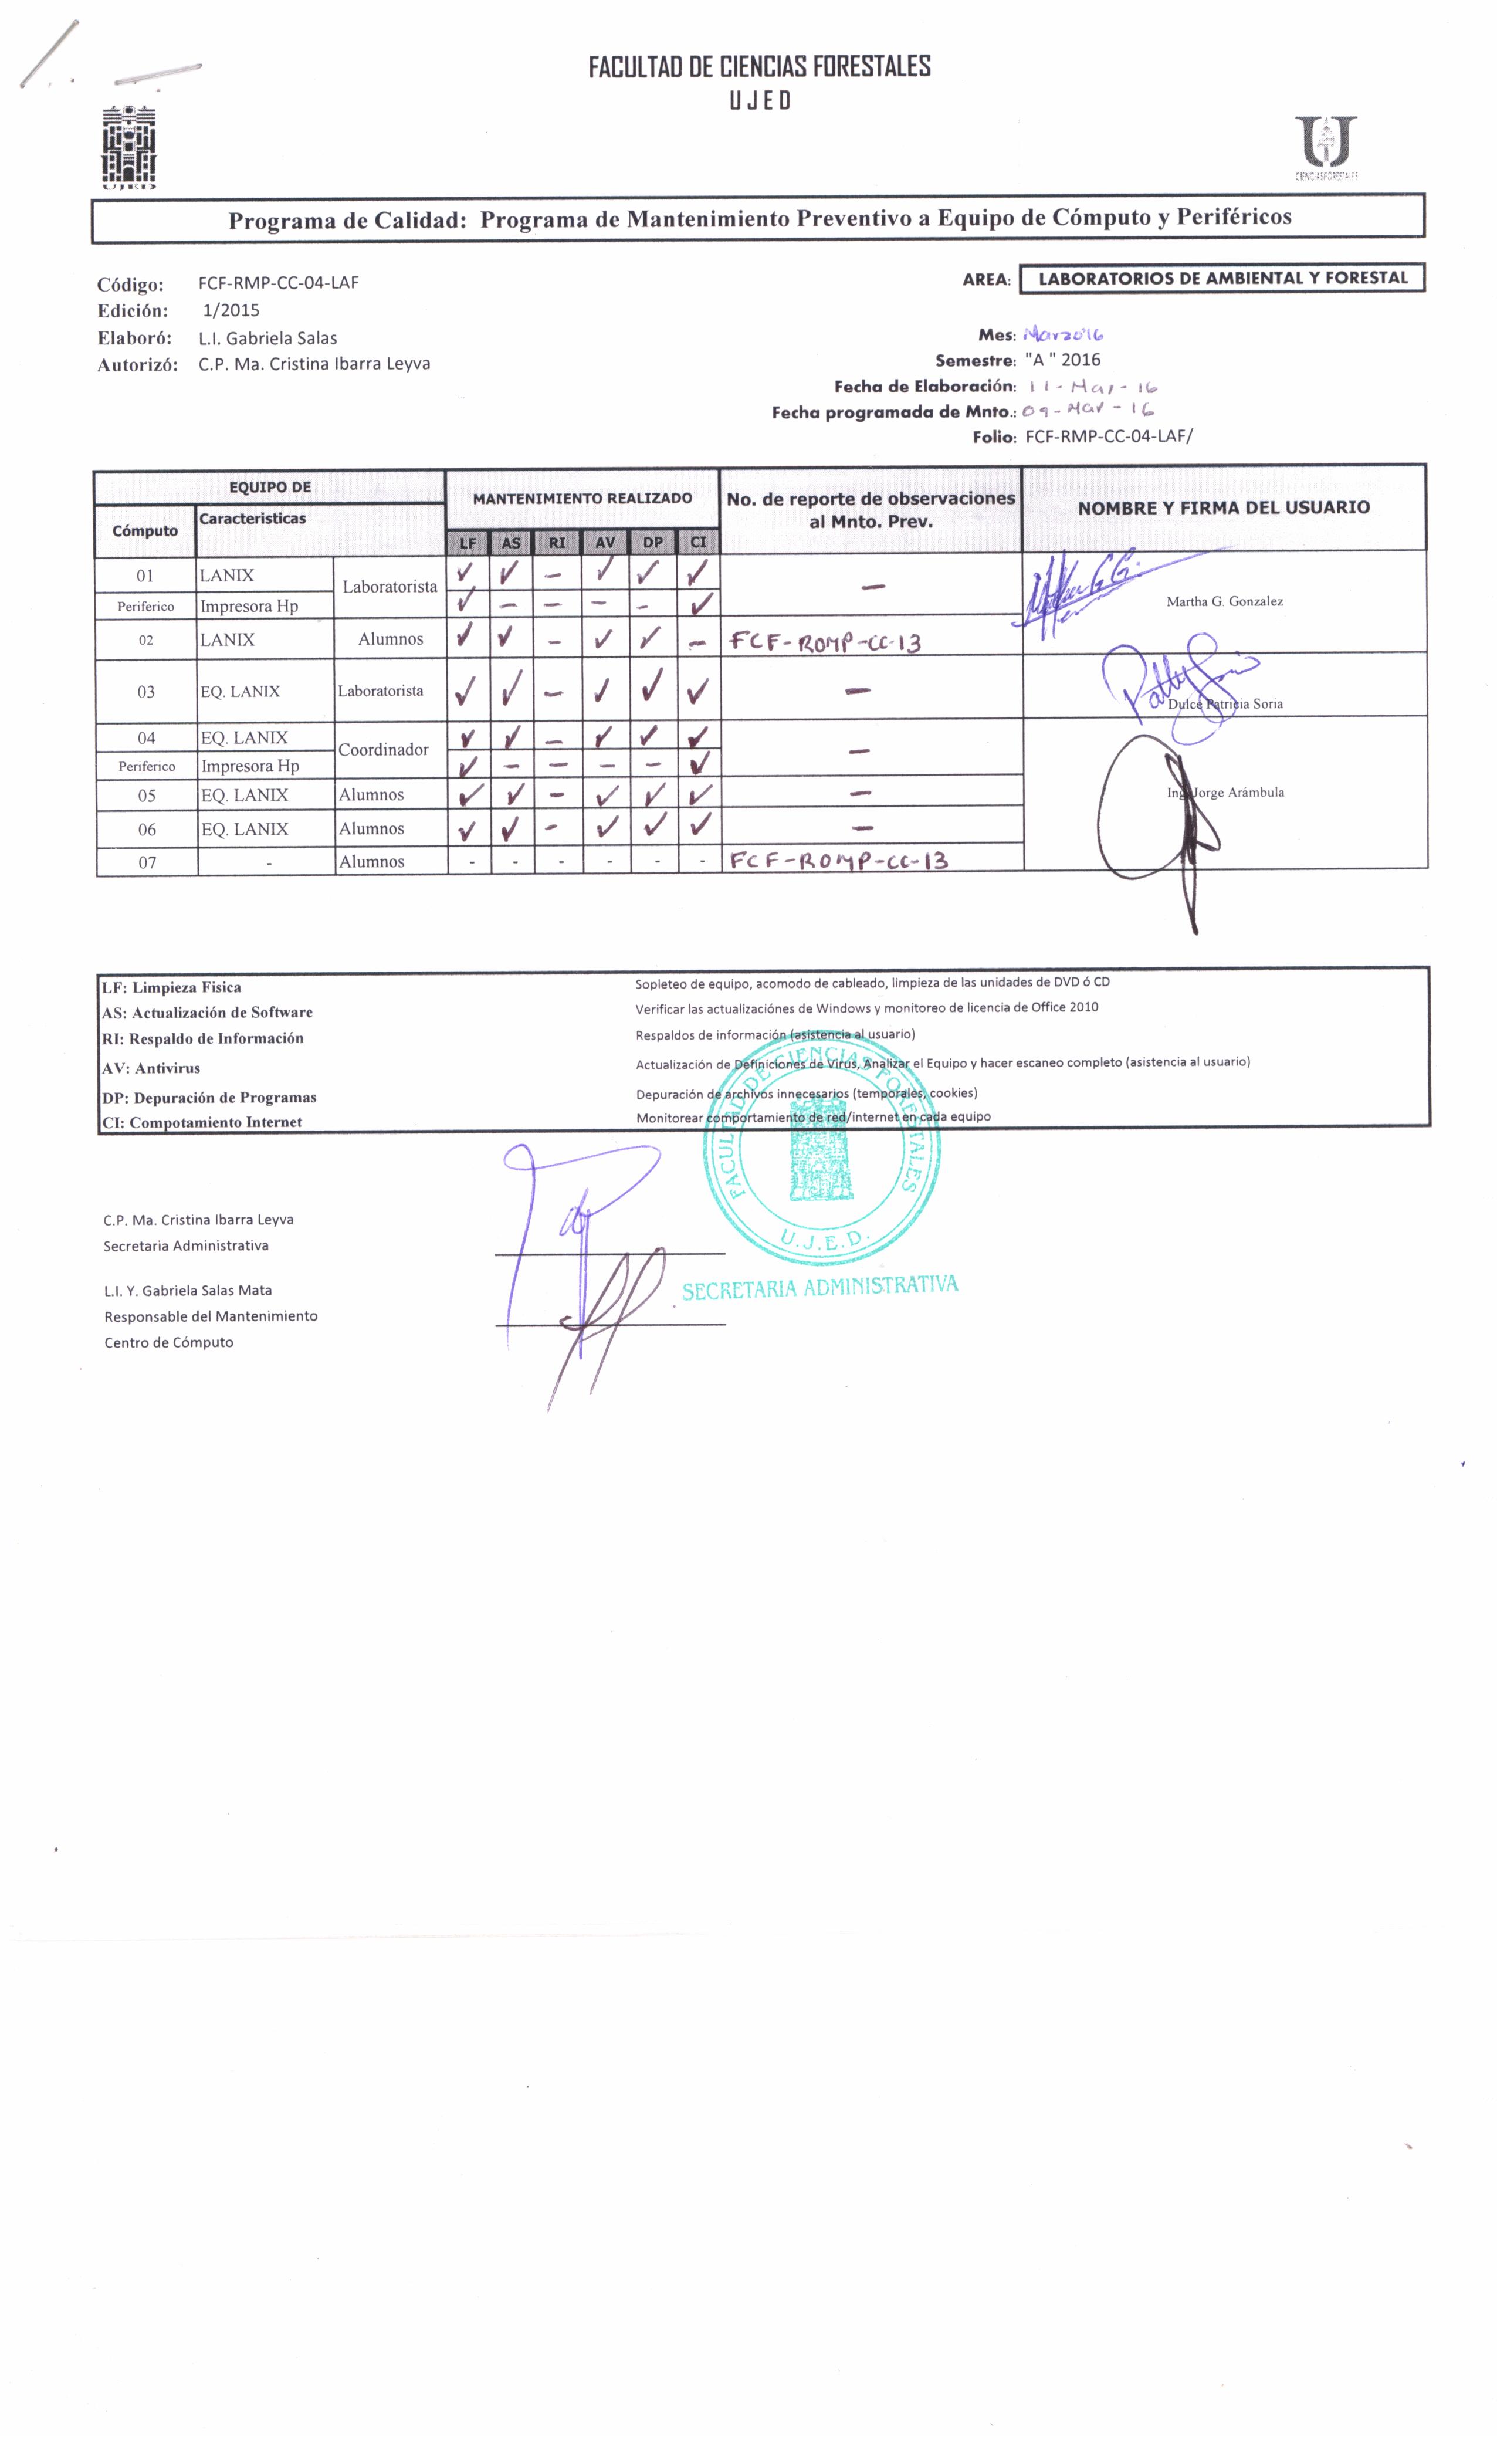 FACULTAD DE CIENCIAS FORESTALES
UJED
UJED
CIENCIASFORESTALES
Programa de Calidad: Programa de Mantenimiento Preventivo a Equipo de Cómputo y Periféricos
Código: FCF-RMP-CC-04-LAF
Edición: 1/2015
Elaboró: L.I. Gabriela Salas
Autorizó: C.P. Ma. Cristina Ibarra Leyva
AREA: LABORATORIOS DE AMBIENTAL Y FORESTAL
Mes: Marzo'16
Semestre: "A " 2016
Fecha de Elaboración: 11-Mar-16
Fecha programada de Mnto.: 09-Mar-16
Folio: FCF-RMP-CC-04-LAF/
EQUIPO DE MANTENIMIENTO REALIZADO No. de reporte de observaciones al Mnto. Prev. NOMBRE Y FIRMA DEL USUARIO
Cómputo Caracteristicas LF AS RI AV DP CI
01 LANIX Laboratorista ✓ ✓ – ✓ ✓ ✓ –
Periferico Impresora Hp ✓ – – – – ✓ Martha G. Gonzalez
02 LANIX Alumnos ✓ ✓ – ✓ ✓ – FCF-ROMP-CC-13
03 EQ. LANIX Laboratorista ✓ ✓ – ✓ ✓ ✓ – Dulce Patricia Soria
04 EQ. LANIX Coordinador ✓ ✓ – ✓ ✓ ✓ –
Periferico Impresora Hp ✓ – – – – ✓
05 EQ. LANIX Alumnos ✓ ✓ – ✓ ✓ ✓ – Ing. Jorge Arámbula
06 EQ. LANIX Alumnos ✓ ✓ - ✓ ✓ ✓ –
07 - Alumnos - - - - - - FCF-ROMP-CC-13
LF: Limpieza Fisica Sopleteo de equipo, acomodo de cableado, limpieza de las unidades de DVD ó CD
AS: Actualización de Software Verificar las actualizaciónes de Windows y monitoreo de licencia de Office 2010
RI: Respaldo de Información Respaldos de información (asistencia al usuario)
AV: Antivirus Actualización de Definiciones de Virus, Analizar el Equipo y hacer escaneo completo (asistencia al usuario)
DP: Depuración de Programas Depuración de archivos innecesarios (temporales, cookies)
CI: Compotamiento Internet Monitorear comportamiento de red/internet en cada equipo
FACULTAD DE CIENCIAS FORESTALES
U.J.E.D.
SECRETARIA ADMINISTRATIVA
C.P. Ma. Cristina Ibarra Leyva
Secretaria Administrativa
L.I. Y. Gabriela Salas Mata
Responsable del Mantenimiento
Centro de Cómputo